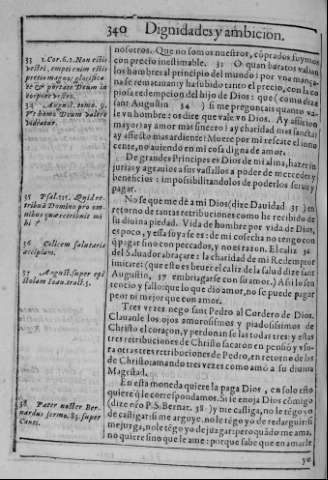 340 Dignidades y ambicion.
33 1. Cor. 6. 2. Non estis
vestri, empti enim estis
pretio magno: glorifica-
te & portate Deum in
corpore vestro.
34 August. tomo. 9.
Vt homo Deum valere
videatur.
35 Psal. 115. Quid re-
tribuã Domino pro om-
nibus quæ retribuit mi-
hi
36 Calicem salutaris
accipiam.
37 August. super epi
stolam Ioan. tract. 5.
38. Pater noster Ber-
nardus sermo. 83. super
Cant.
nosotros. Que no somos nuestros, cõprados fuymos
con precio inestimable. 33 O quan baratos valian
los hombres al principio del mundo: por vna mança-
na se remataron y ha subido tanto el precio, con la co
piosa redempcion del hijo de Dios: que (como dize
sant Augustin 34) si me preguntais quanto va-
le vn hombre: os dire que vale vn Dios. Ay aficion
mayor? ay amor mas sincero? ay charidad mas sancta?
ay afecto mas ardiente? Muere por mi rescate el inno
cente, no auiendo en mi cosa digna de amor.
De grandes Principes es Dios de mi alma, hazer in
jurias y agrauios a sus vassallos a poder de mercedes y
beneficios: impossibilitandolos de poderlos seruir y
pagar.
No se que me dè a mi Dios (dize Dauidad 35) en
retorno de tantas retribuciones como he recibido de
su diuina piedad. Vida de hombre por vida de Dios,
es poco, y essa soy a fe es: de mi cosecha no tengo con
q̃ pagar sino con peccados, y no es razon. El caliz 36
del Saluador abraçare: la charidad de mi Redemptor
imitarè: (que esso es beuer el caliz de la salud dize sant
Augustin, 37 embriagarse con su amor.) Assi lo sen
tencio y fallo: que lo que dio amor, no se puede pagar
peor ni mejor que con amor.
Tres vezes nego sant Pedro al Cordero de Dios.
Clauanle los ojos amorosissimos y piadosissimos de
Christo el coraçon, y perdonanse las todas tres: y estas
tres retribuciones de Christo sacaron en pesso y vso-
ra otras tres retribuciones de Pedro, en retorno de las
de Christo: amando tres vezes como amò a su diuina
Magestad.
En esta moneda quiere la paga Dios, en solo esto
quiere q̃ le correspondamos. Si le enoja Dios cõmigo
(dize nr̃o P. S. Bernar. 38) y me castiga, no le tẽgo yo
de castigar: si me arguye, no le tẽgo yo de redarguir: si
me juzga, no le tẽgo yo de juzgar: pero quãdo me ama,
no quiere sino que le ame: porque sabe que en amarle